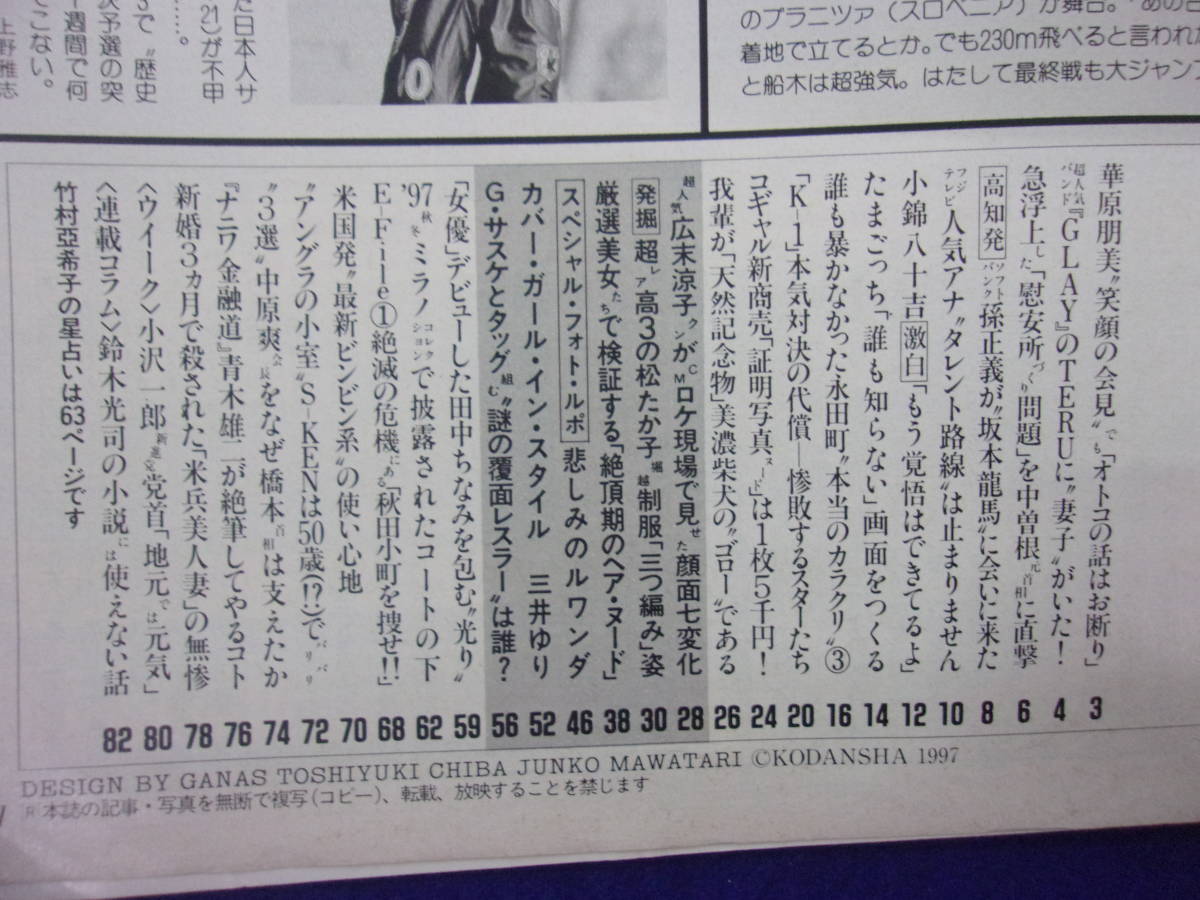 のプラニツァ（スロベニア）が舞台。
着地で立てるとか。でも230m飛べると言われた
と船木は超強気。はたして最終戦も大ジャンプ
た日本人サ
21)が不甲
……。
で〝歴史
決予選の突
週間で何
てこない。
上野雅志
華原朋美〝笑顔の会見〟でも「オトコの話はお断り」 3
超人気バンド『GLAY』のTERUに〝妻子〟がいた！ 4
急浮上した「慰安所づくり問題」を中曽根元首相に直撃 6
高知発 ソフトバンク孫正義が〝坂本龍馬〟に会いに来た 8
フジテレビ人気アナ〝タレント路線〟は止まりません 10
小錦八十吉 激白「もう覚悟はできてるよ」 12
たまごっち「誰も知らない」画面をつくる 14
誰も暴かなかった永田町〝本当のカラクリ〟③ 16
「K-1」本気対決の代償―惨敗するスターたち 20
コギャル新商売「証明写真ヌード」は1枚5千円！ 24
我輩が「天然記念物」美濃柴犬の〝ゴロー〟である 26
超人気広末涼子クンがCMロケ現場で見せた顔面七変化 28
発掘 超レア高3の松たか子堀越制服「三つ編み」姿 30
厳選美女たちで検証する「絶頂期のヘア・ヌード」 38
スペシャル・フォト・ルポ 悲しみのルワンダ 46
カバー・ガール・イン・スタイル　三井ゆり 52
G・サスケとタッグ組む〝謎の覆面レスラー〟は誰？ 56
「女優」デビューした田中ちなみを包む〝光り〟 59
'97秋冬ミラノコレクションで披露されたコートの下 62
E-File①絶滅の危機にある「秋田小町を捜せ!!」 68
米国発〝最新ビンビン系〟の使い心地 70
〝アングラの小室〟S-KENは50歳(!?)でバリバリ 72
〝3選〟中原爽会長をなぜ橋本首相は支えたか 74
『ナニワ金融道』青木雄二が絶筆してやるコト 76
新婚3ヵ月で殺された「米兵美人妻」の無惨 78
〈ウイーク〉小沢一郎新進党党首「地元では元気」 80
〈連載コラム〉鈴木光司の小説には使えない話 82
竹村亞希子の星占いは63ページです
DESIGN BY GANAS TOSHIYUKI CHIBA JUNKO MAWATARI ©KODANSHA 1997
R 本誌の記事・写真を無断で複写(コピー)、転載、放映することを禁じます